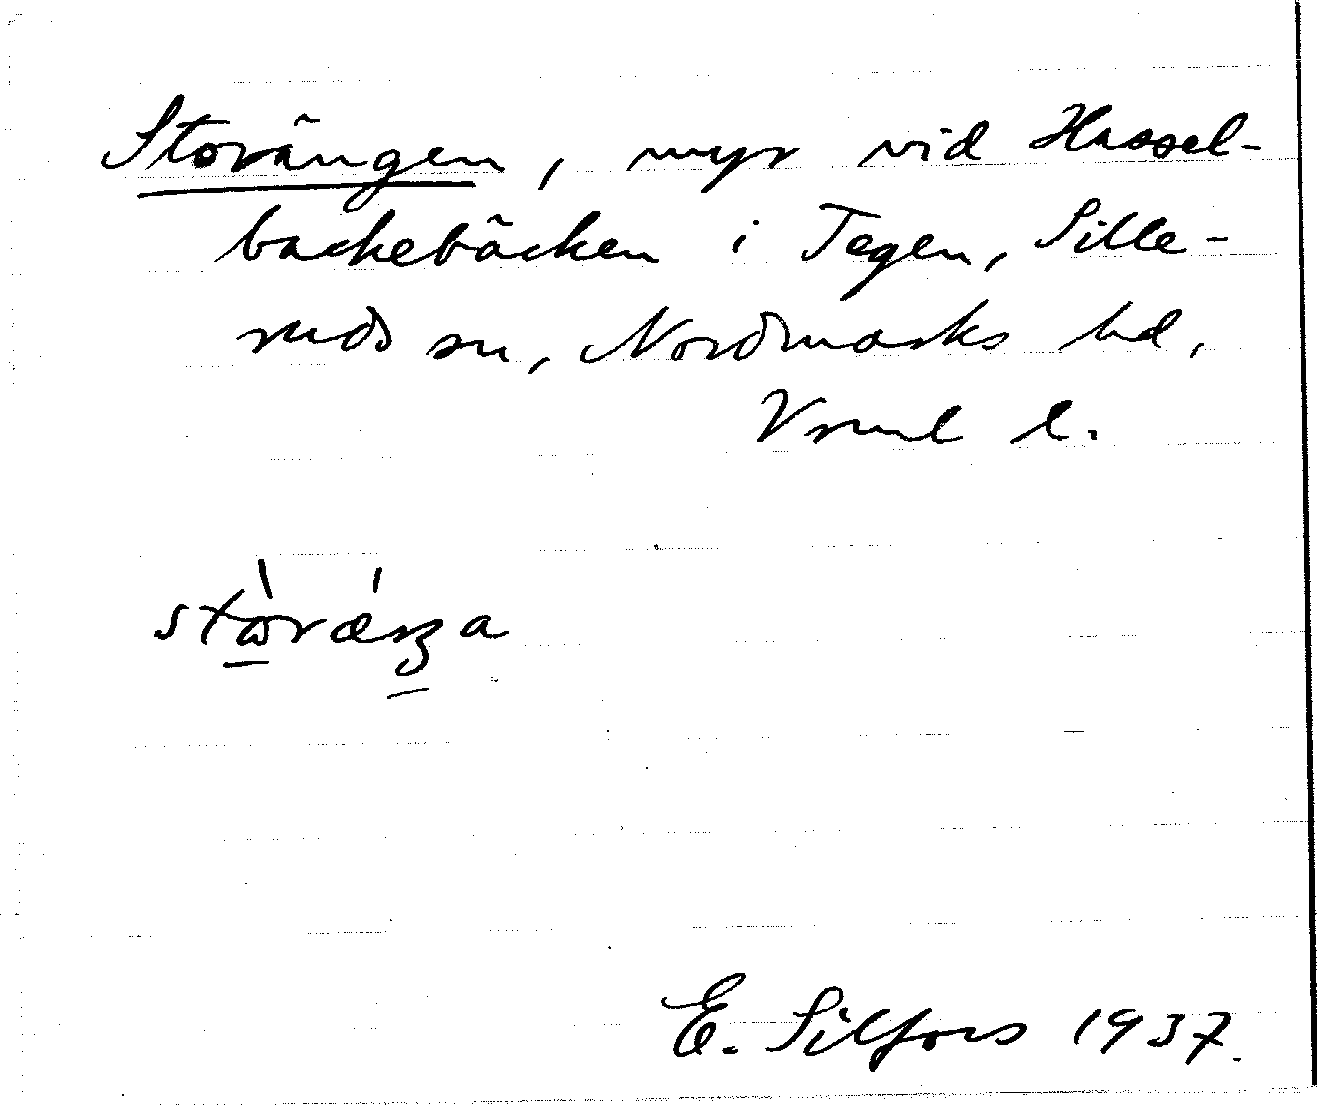 Storängen, myr vid Hassel-
backebäcken i Tegen, Sille-
ruds sn, Nordmarks hd,
Vrml l.
E. Silfors 1937.